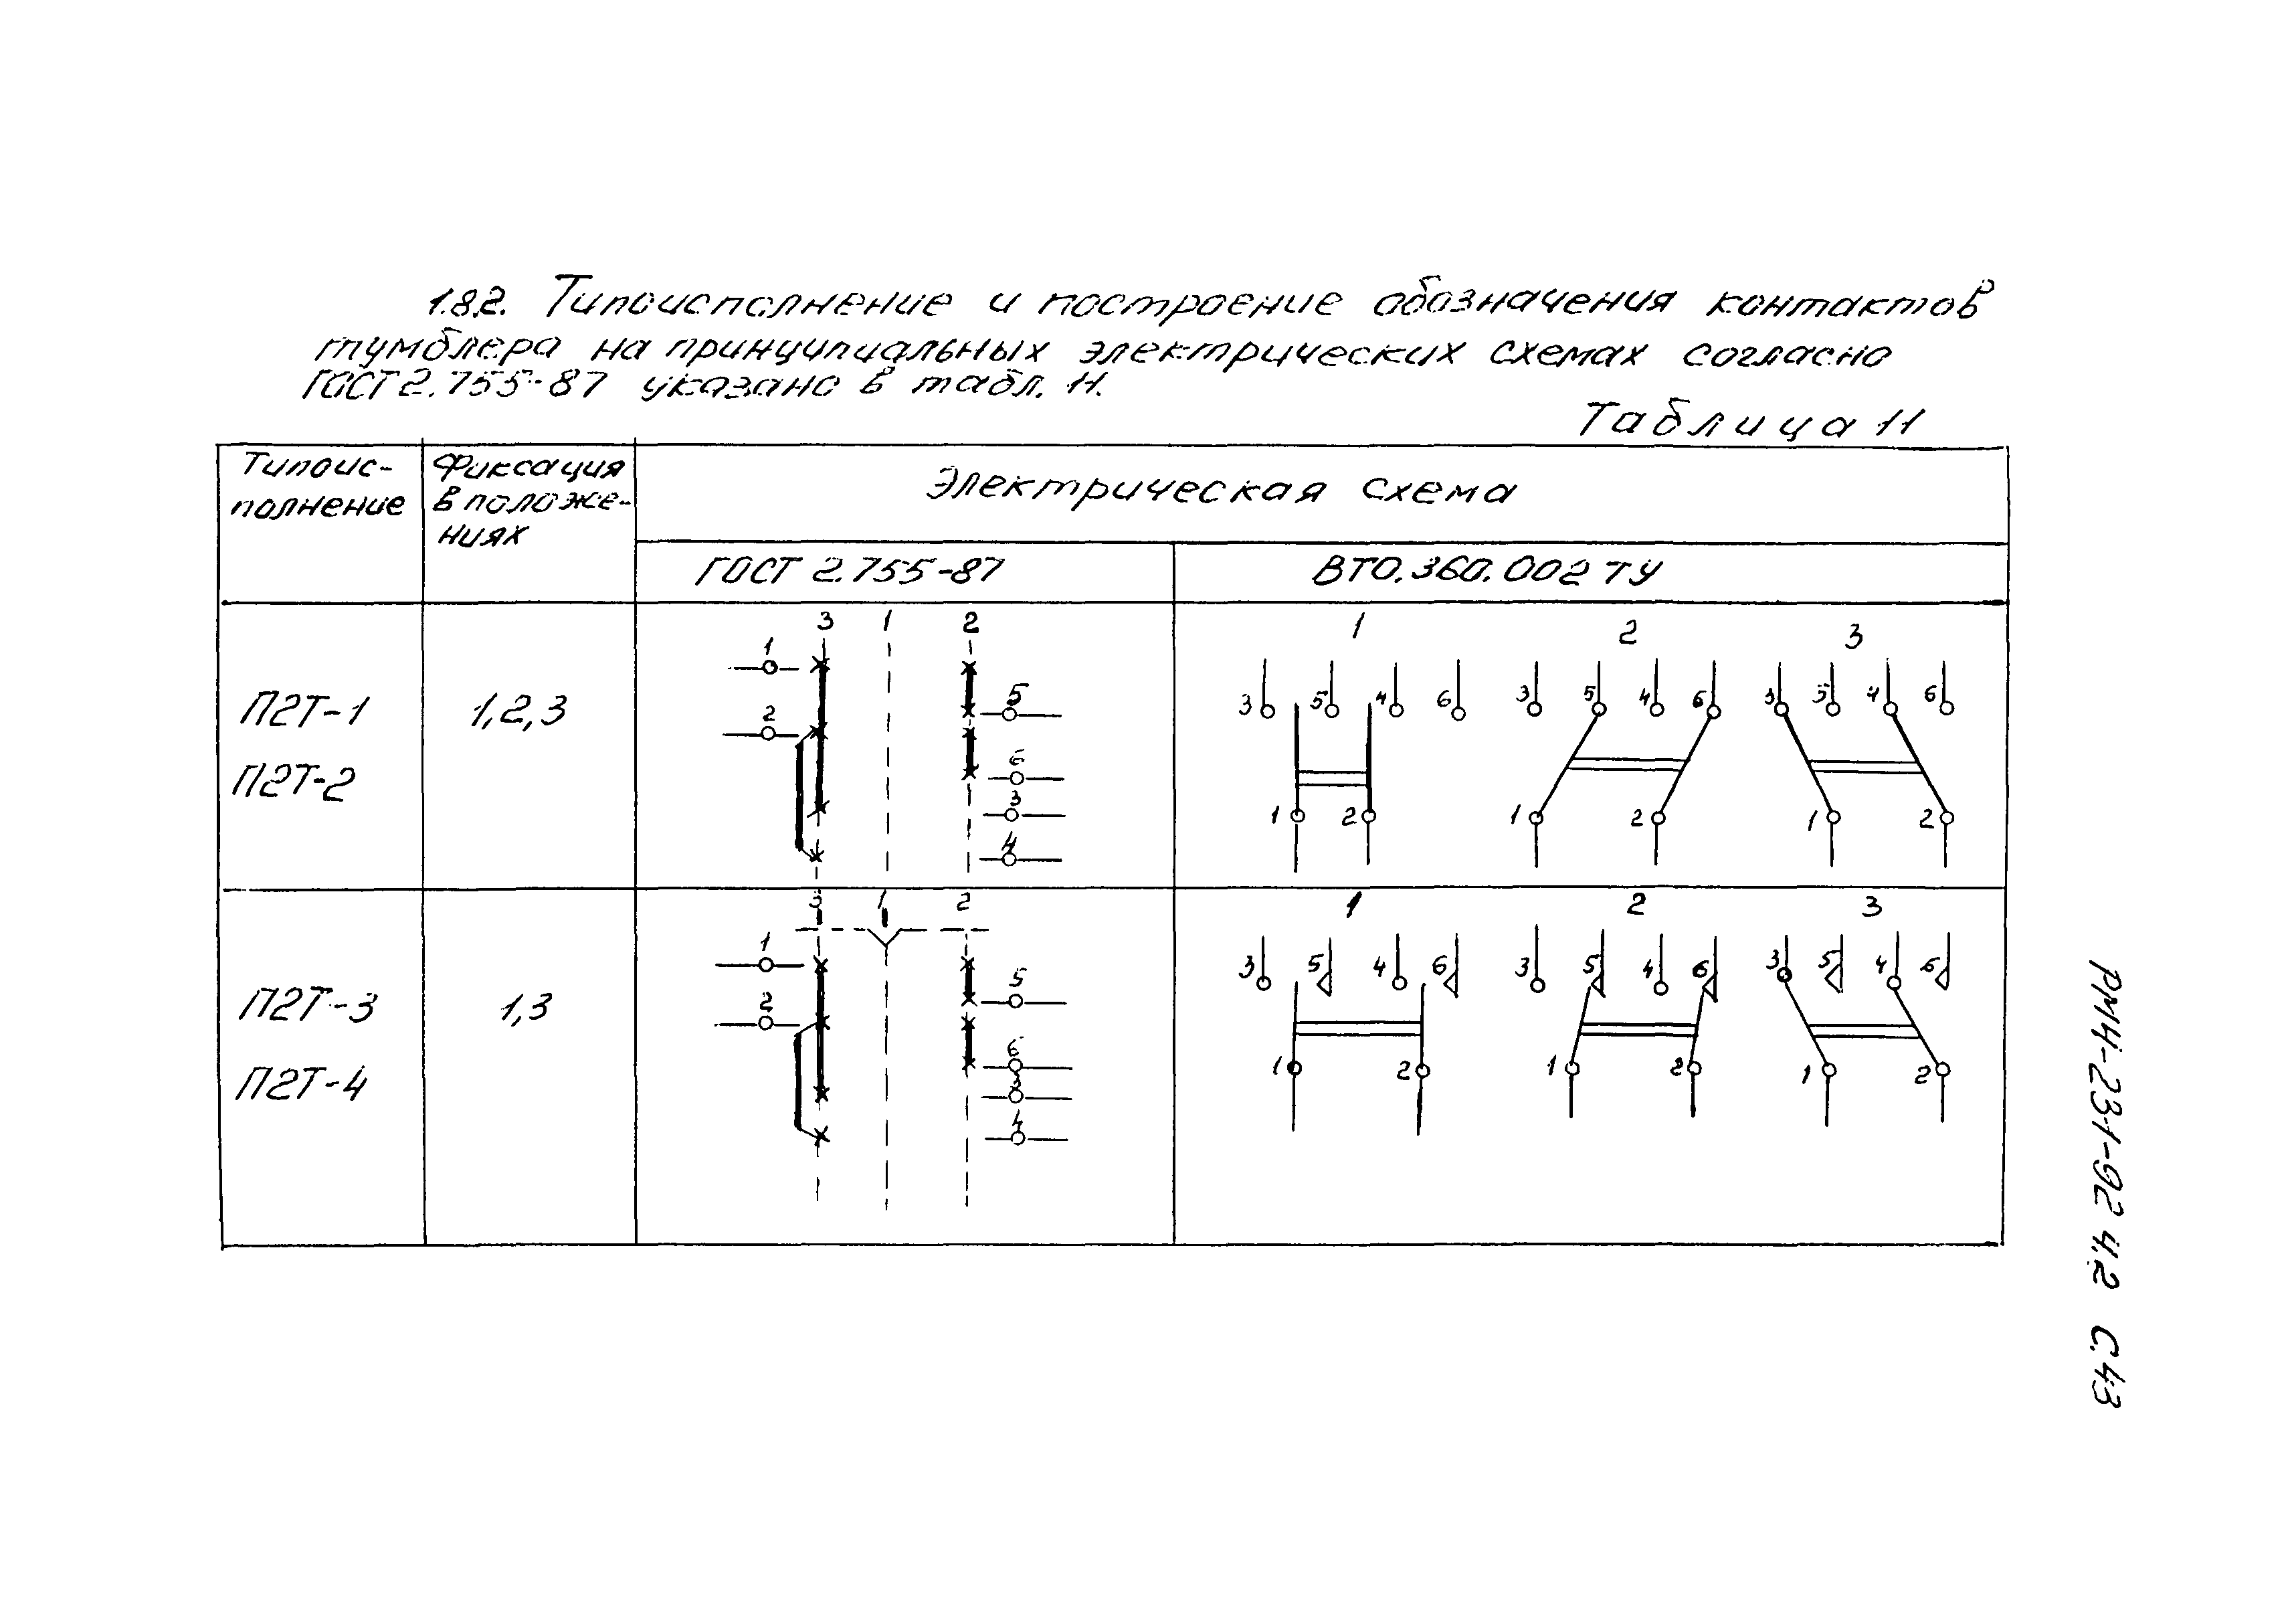 1.8.2. Типоисполнение и построение обозначения контактов
тумблера на принципиальных электрических схемах согласно
ГОСТ 2.755-87 указано в табл. 11.
Таблица 11
Типоис-
полнение
Фиксация
в положе-
ниях
Электрическая схема
ГОСТ 2.755-87
ВТО.360.002 ТУ
П2Т-1
П2Т-2
1,2,3
3 1 2
1
2
5
6
3
4
1 2 3
3 5 4 6 3 5 4 6 3 5 4 6
1 2 1 2 1 2
П2Т-3
П2Т-4
1,3
3 1 2
1
2
5
6
3
4
1 2 3
3 5 4 6 3 5 4 6 3 5 4 6
1 2 1 2 1 2
РМ4-231-92 ч.2 С.43